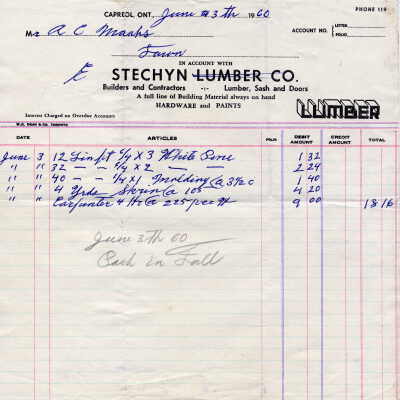 PHONE 119
CAPREOL, ONT., June 3th 1960
Mr A C Maahs
ACCOUNT NO. LETTER FOLIO
Town
IN ACCOUNT WITH
STECHYN LUMBER CO.
Builders and Contractors -:- Lumber, Sash and Doors
A full line of Building Material always on hand
HARDWARE and PAINTS
LUMBER
Interest Charged on Overdue Accounts
DATE ARTICLES FOLIO DEBIT AMOUNT CREDIT AMOUNT TOTAL
June 3 12 Lin ft 5/4 x 3 White Pine 1 32
" " 32 — — 5/4 x 2 — — 2 24
" " 40 — — 5/4 x 1 Molding @ 3 1/2 c 1 40
" " 4 Yrds @ 105 4 20
" " Carpenter 4 Hr @ 225 per H 9 00 18 16
June 3th 60
Cash in Full